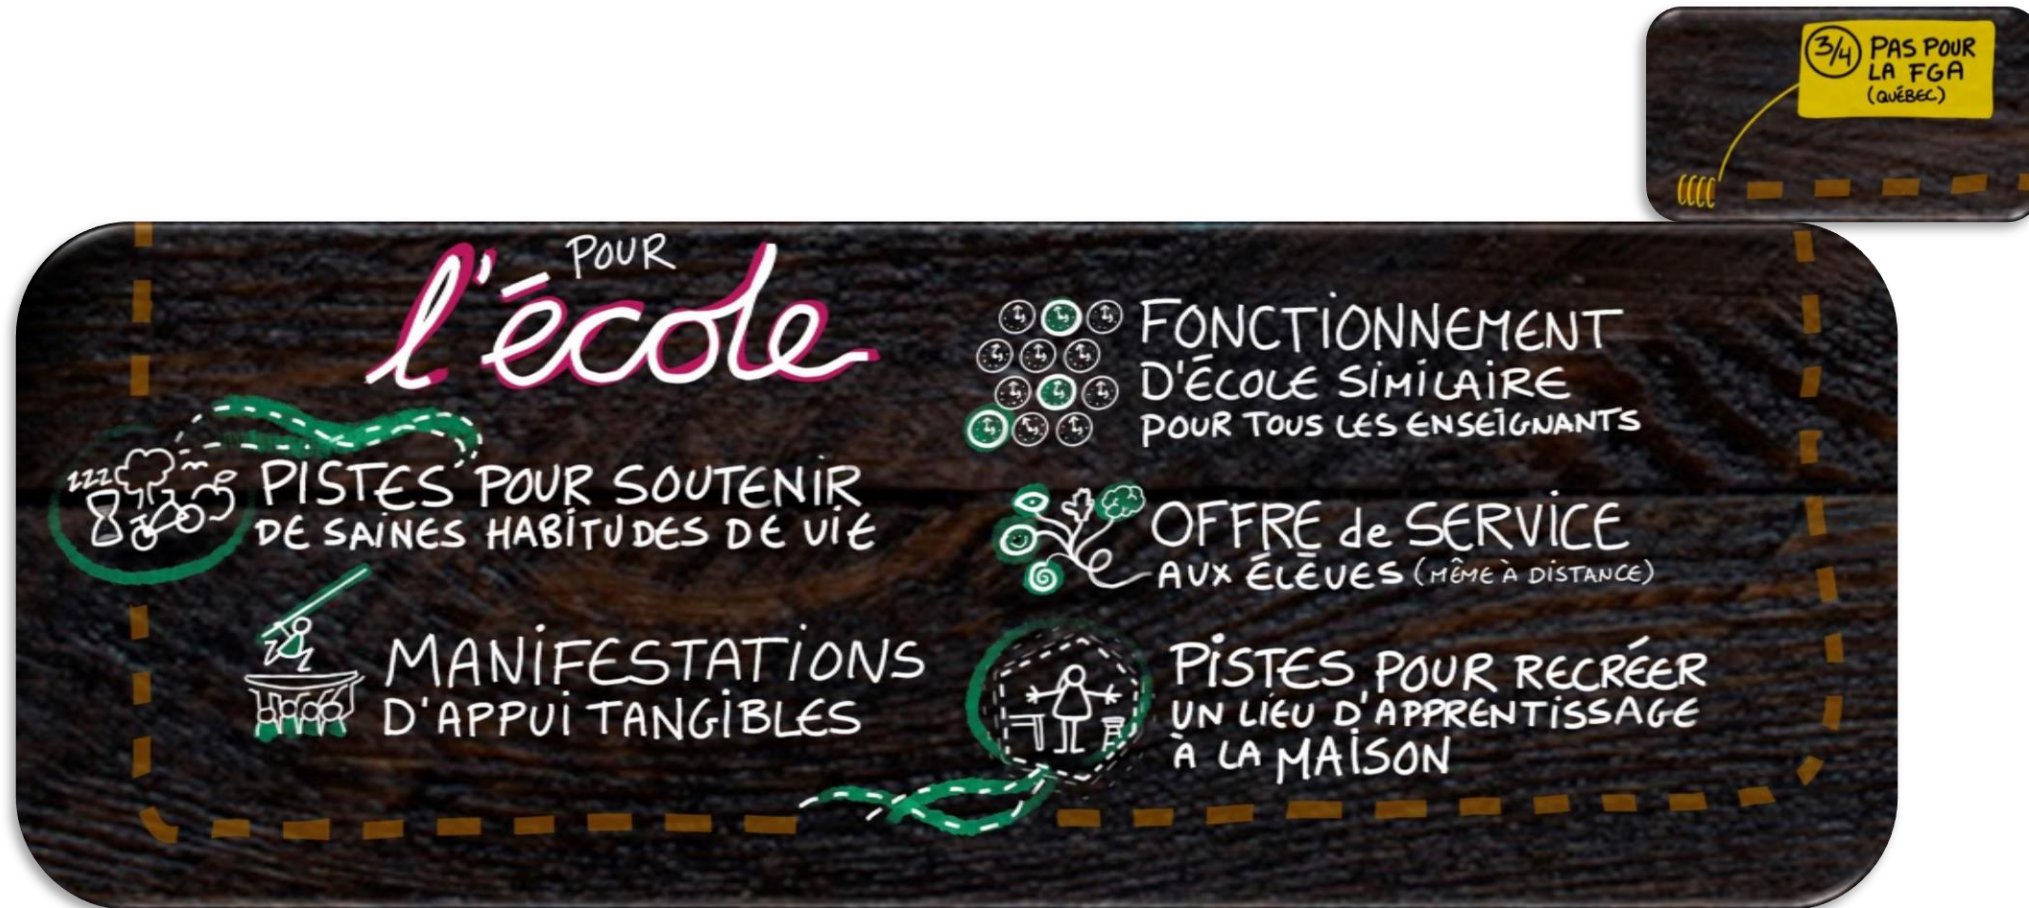 3/4 PAS POUR
LA FGA
(QUÉBEC)
POUR
l'école
PISTES POUR SOUTENIR
DE SAINES HABITUDES DE VIE
MANIFESTATIONS
D'APPUI TANGIBLES
FONCTIONNEMENT
D'ÉCOLE SIMILAIRE
POUR TOUS LES ENSEIGNANTS
OFFRE de SERVICE
AUX ÉLÈVES (MÊME À DISTANCE)
PISTES POUR RECRÉER
UN LIEU D'APPRENTISSAGE
À LA MAISON
zzz